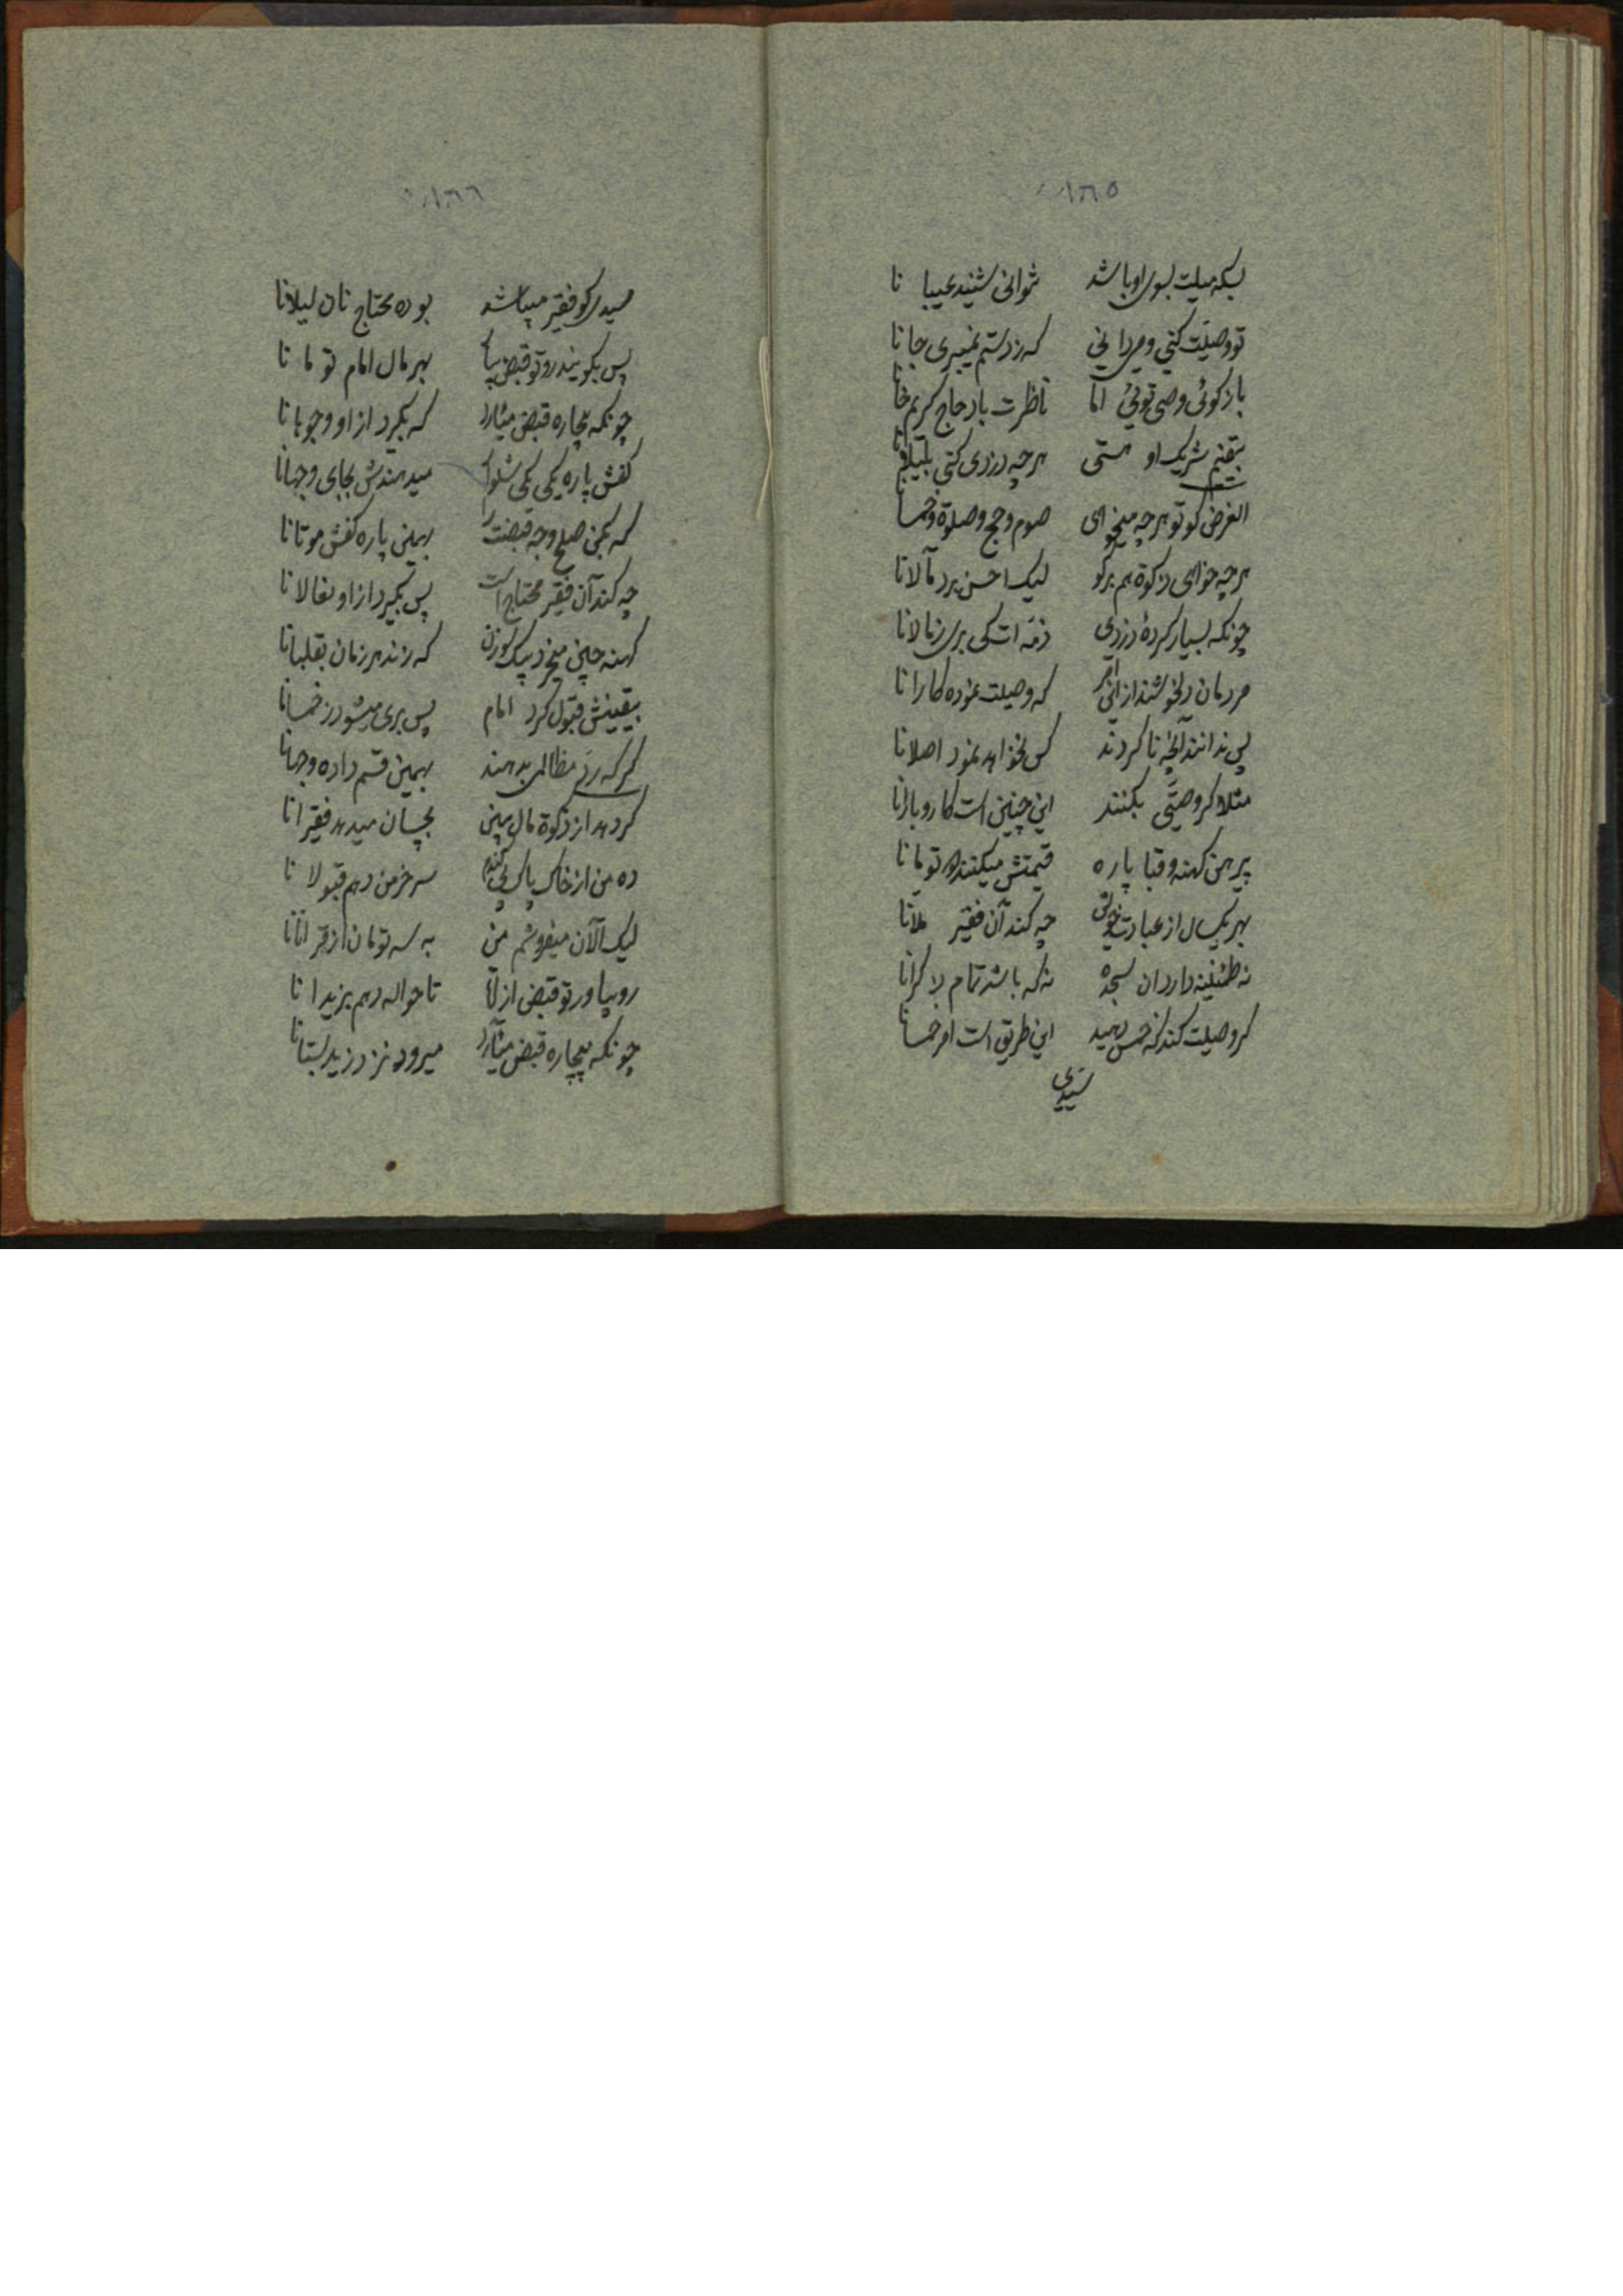 ١٦٥
بسکه میلت بسوی او باشد نتوانی شنید عیبا نا
تو وصیت کنی و میدانی که ز دستم نمیبری جانا
باز گوئی وصی توئی اما ناظرت باد حاج کریم خانا
بیقینم شریک او هستی هرچه دزدی کنی
الغرض گو تو هرچه میخواهی صوم و حج و صلوة و خمسانا
هرچه خواهی زکوة هم برگو لیک احسن برد مآلانا
چونکه بسیار کردهٔ دزدی ذمه ات کی بری ز مالانا
مردمان دلخوشند از این امر که وصیت نموده کارانا
پس ندانند آنچه نا کردند کس نخواهد نمود اصلانا
مثلا گر وصیتی بکنند این چنین است کار و بارانا
پیرهن کهنه و قبا پاره قیمتش میکنند تومانا
بهر یکسال از عبادت چه کند آن فقیر ملانا
نه طمئنینه دارد آن سجده نه که باشد تمام ذکرانا
گر وصیت کند که خمس دهید این طریق است امر خمسانا
سیدی
١٦٦
سیدی کو فقیر میباشد بوده محتاج نان لیلانا
پس بگویند رو تو قبض بیار بهر مال امام تومانا
چونکه بیچاره قبض میآرد که بگیرد از او وجوهانا
کفش پاره یکی یکی شلوار میدهندش بجای وجهانا
که بکن صلح وجه قبضت را بهمین پاره کفش موتانا
چه کند آن فقیر محتاج است پس بگیرد از او نعالانا
کهنه چین میخرد بیک سوزن که زند هر زمان بقلبانا
بیقینش قبول کرد امام پس بری میشود ز خمسانا
گر که رد مظالمی بدهند بهمین قسم داده وجهانا
گر دهد از زکوة مال ببین بچسان میدهد فقیرانا
ده من از خاک پاک بی گندم سر خرمن دهم قبولا نا
لیک الآن میفروشم من به سه تومان از قرانانا
رو بیاور تو قبض از ملا تا حواله دهم بزیدا نا
چونکه بیچاره قبض میآرد میرود نزد زید بستانا